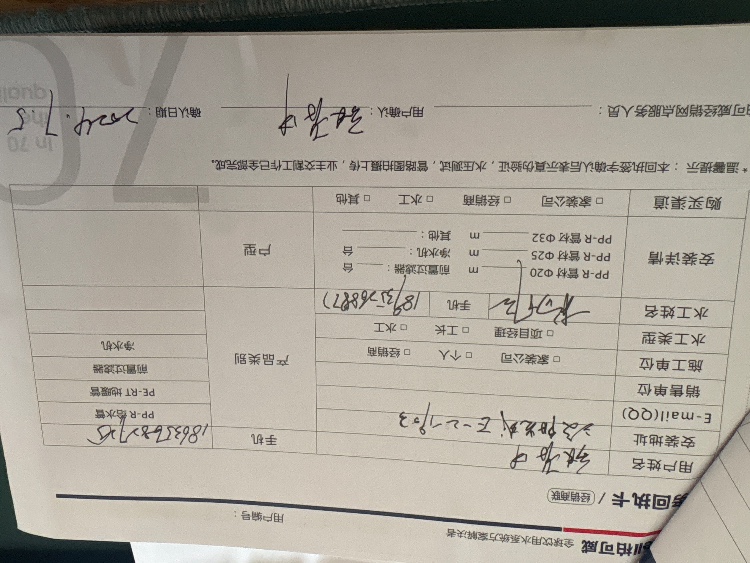 柏可威 全球饮用水系统方案解决者
用户编号：
回执卡 / 经销商联
用户姓名
手机
安装地址
E-mail(QQ)
销售单位
施工单位 □ 家装公司 □ 个人 □ 经销商
水工类型 □ 项目经理 □ 工长 □ 水工
水工姓名 手机
产品类别
PP-R 给水管
PE-RT 地暖管
前置过滤器
净水机
安装详情
PP-R 管材 Φ20 m 前置过滤器： 台
PP-R 管材 Φ25 m 净水机： 台
PP-R 管材 Φ32 m 其他：
户型
购买渠道 □ 家装公司 □ 经销商 □ 水工 □ 其他
* 温馨提示：本回执签字确认后表示真伪验证，水压测试，管路图拍摄上传，业主交割工作已全部完成。
可威经销网点服务人员： 用户确认： 确认日期：2024.7.5
In 70
the
quali